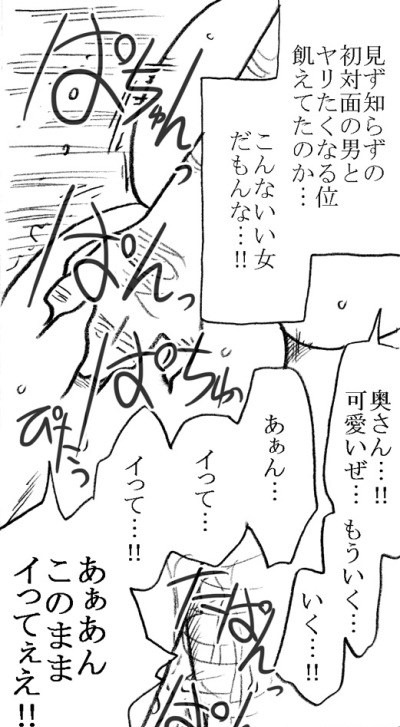 見ず知らずの
初対面の男と
ヤりたくなる位
飢えてたのか…
こんないい女
だもんな…!!
ぱちゅんっ
ぱんっ
ぱちゅっ
ぴたっ
奥さん…!!
可愛いぜ…
もういく…
いく…!!
あぁん…
イって…
イって…!!
あぁあん
このまま
イってぇえ!!
たぱんっ